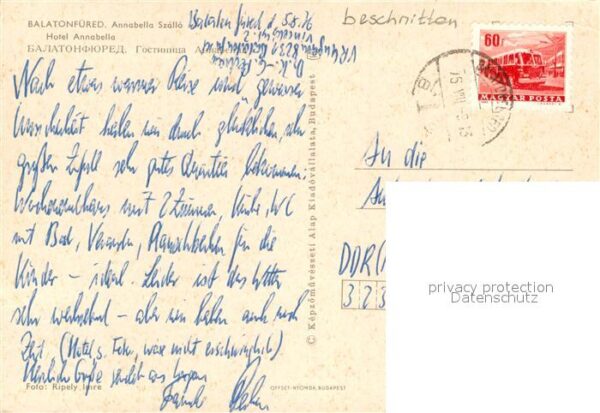 BALATONFÜRED. Annabella Szálló
Hotel Annabella
БАЛАТОНФЮРЕД. Гостиница
Balaton füred, d. 5.8.76
beschnitten
60f
MAGYAR POSTA
Nach etwas warmer Reise und gewisser
haben wir durch glücklichen, sehr
großen Zufall sehr gutes Quartier bekommen:
Wochenendhaus mit 2 Zimmern, Küche, WC
mit Bad, Veranda, Planschbecken für die
Kinder – ideal. Leider ist das Wetter
sehr wechselnd – aber wir haben auch noch
Zeit. (Hotel s. Foto, wäre nicht erschwinglich)
Herzliche Grüße sendet aus Ungarn
Familie
Foto: Ripely Imre
© Képzőművészeti Alap Kiadóvállalata, Budapest
OFFSET-NYOMDA, BUDAPEST
An die
DDR
323
privacy protection
Datenschutz